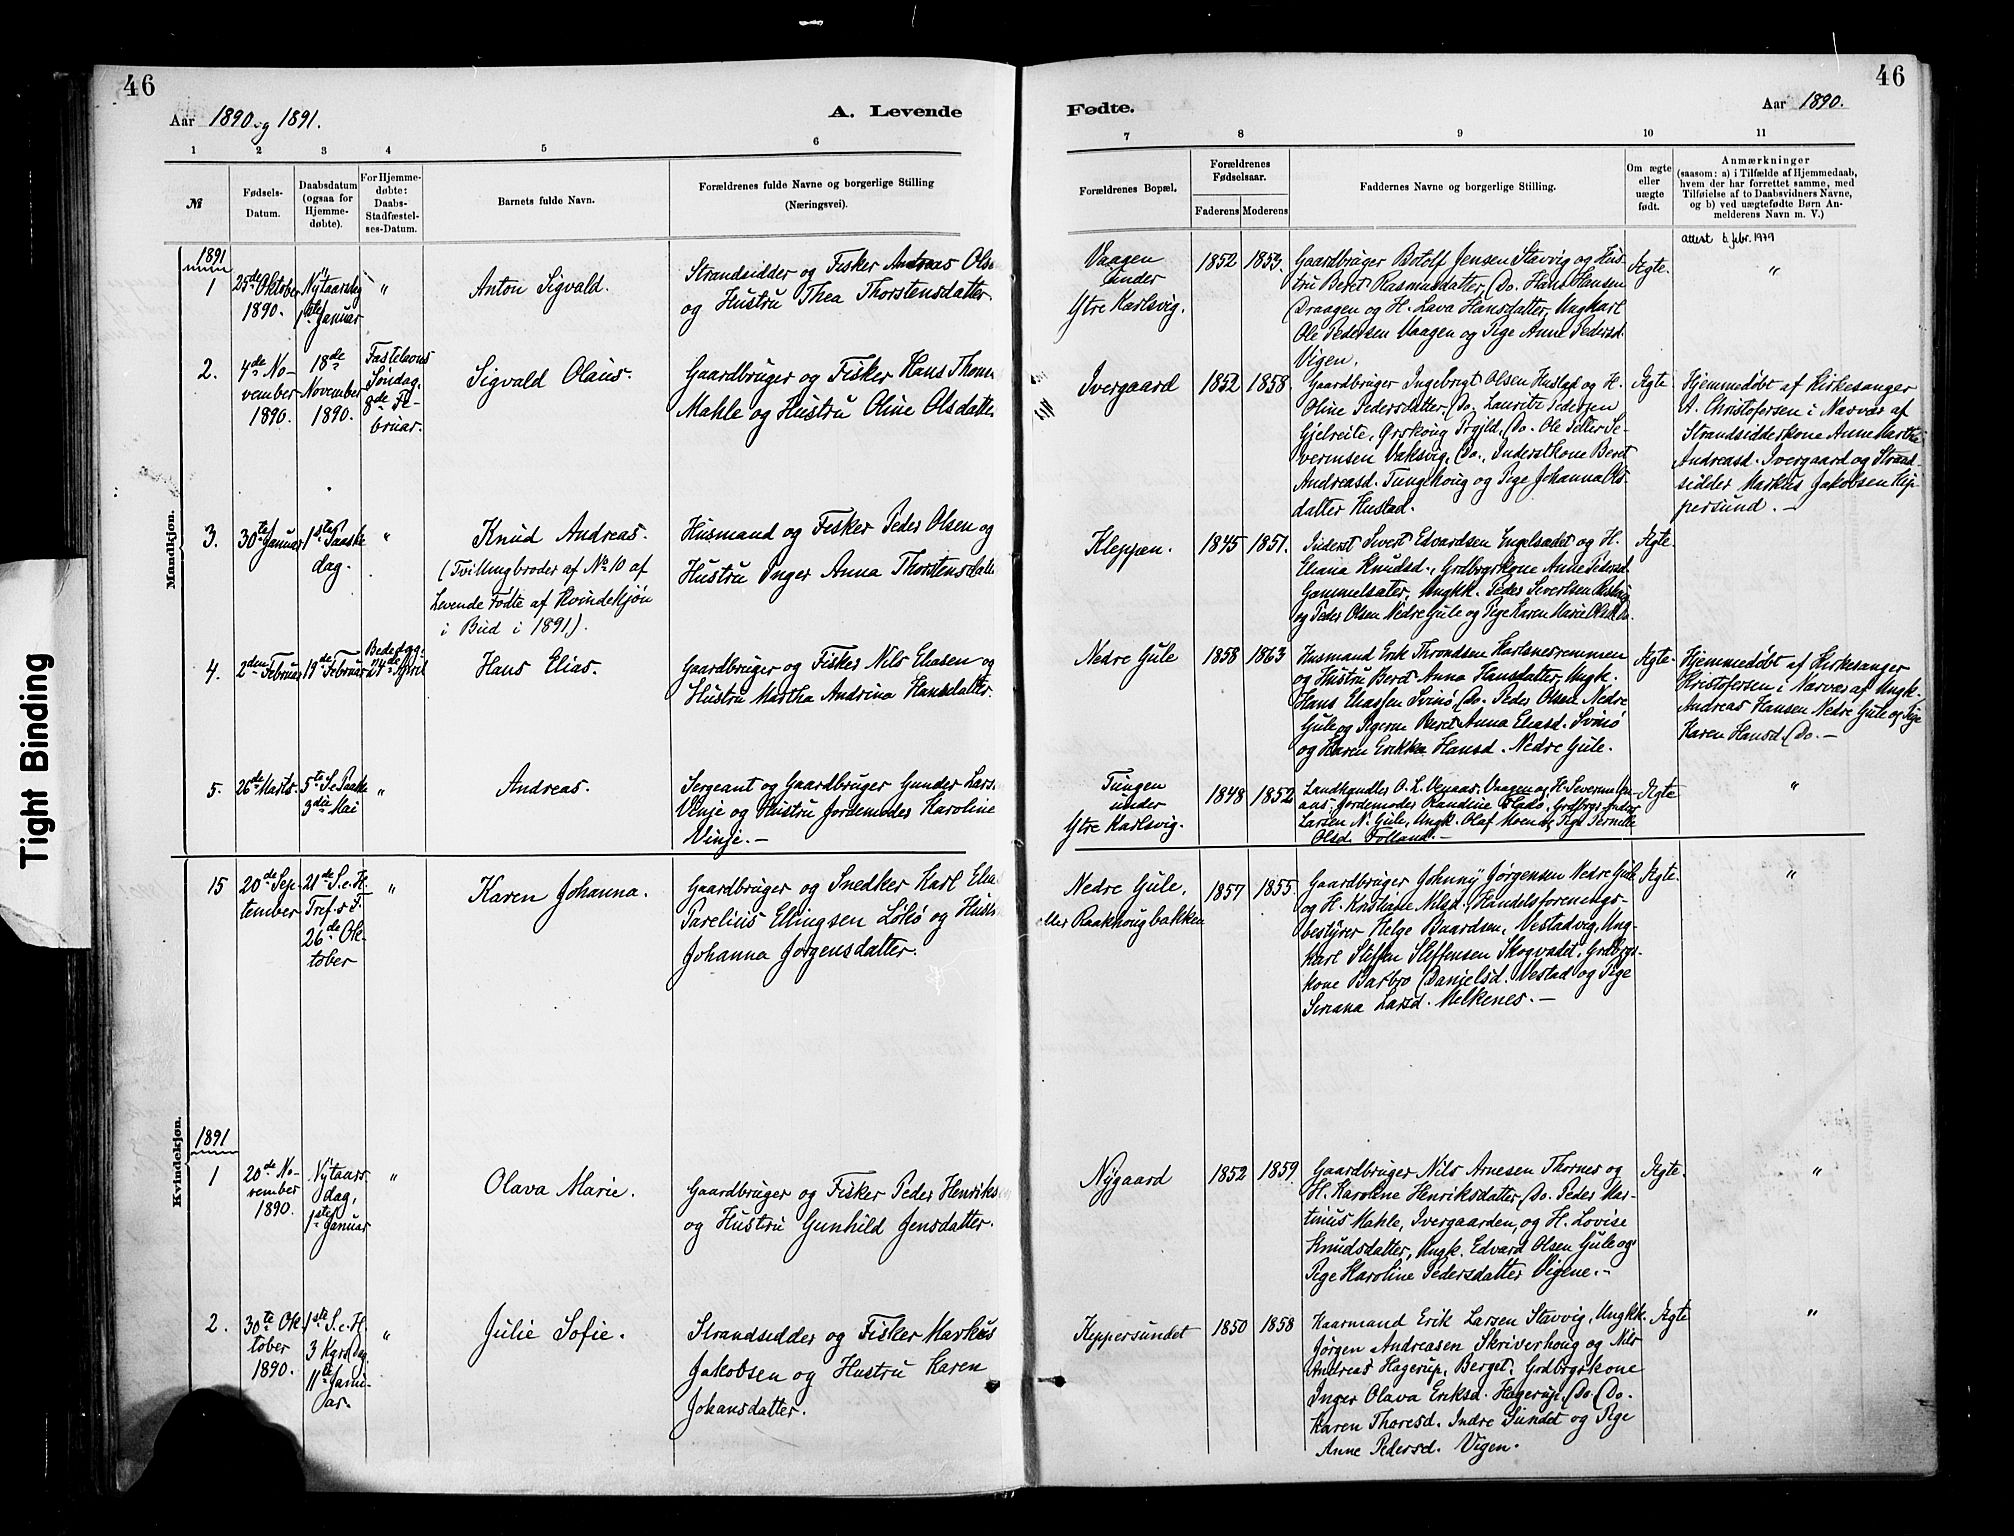 Tight Binding
46
Aar 1890 og 1891.
A. Levende
1 2 3 4 5 6
№
Fødsels-
Datum.
Daabsdatum
(ogsaa for
Hjemme-
døbte).
For Hjemme-
døbte:
Daabs-
Stadfæstel-
ses-Datum.
Barnets fulde Navn.
Forældrenes fulde Navne og borgerlige Stilling
(Næringsvei).
Mandkjøn.
1891
1
25de Oktober
1890.
Nytaarsdag
1ste Januar
"
Anton Sigvald.
Strandsidder og Fisker Andreas Olse
og Hustru Thea Thorstensdatter.
2.
4de No-
vember
1890.
18de
November
1890.
Fastelavns
Søndag,
8de Fe-
bruar.
Sigvald Olaus.
Gaardbruger og Fisker Hans Thoms
Mahle og Hustru Oline Olsdatte
3.
30te Januar
1ste Paaske
dag.
"
Knud Andreas.
(Tvillingbroder af No 10 af
Levende Fødte af Kvindekjøn
i Bud i 1891).
Husmand og Fisker Peder Olsen og
Hustru Inger Anna Thorstensdatte
4.
2den Februar
19de Februar
Bededag
24de April
Hans Elias.
Gaardbruger og Fisker Nils Eliasen og
Hustru Martha Andrina Hansdatter.
5.
26de Marts.
5te S. e Paaske
3die Mai
"
Andreas.
Sergeant og Gaardbruger Gunder Lars.
Vinje og Hustru Jordemoder Karoline
Vinje. —
Kvindekjøn.
15
20de Sep-
tember
21de S. e. H.
Tref. s F.
26de Ok-
tober
"
Karen Johanna.
Gaardbruger og Snedker Karl Elia
Parelius Ellingsen Løkø og Hust
Johanna Jørgensdatter.
1891
1
20de No-
vember
1890.
Nytaars
dag,
1ste Januar
"
Olava Marie.
Gaardbruger og Fisker Peder Henriks
og Hustru Gunhild Jensdatter.
2.
30te Ok-
tober
1890.
1ste S. e. H.
3 Kgrs Dag
11te Janu-
ar.
"
Julie Sofie.
Strandsidder og Fisker Markus
Jakobsen og Hustru Karen
Johansdatter.
46
Fødte.
Aar 1890.
7 8 9 10 11
Forældrenes Bopæl.
Forældrenes
Fødselsaar.
Faderens Moderens
Faddernes Navne og borgerlige Stilling.
Om ægte
eller
uægte
født.
Anmærkninger
(saasom: a) i Tilfælde af Hjemmedaab,
hvem der har forrettet samme, med
Tilføielse af to Daabsvidners Navne,
og b) ved uægtefødte Børn An-
melderens Navn m. V.)
attest 6 febr. 1979
Vaagen
under
Ytre Karlsvig.
1852 1853.
Gaardbruger Botolf Jensen Stavvig og Hus-
tru Beret Rasmusdatter, Do. Hans Hansen
Draagen og H. Lava Hansdatter, Ungkarl
Ole Pedersen Vaagen og Pige Anne Pedersd.
Vigen.
Ægte.
"
Ivergaard
1852 1858.
Gaardbruger Ingebrigt Olsen Hustad og H.
Oline Pedersdatter, Do. Lauritz Pedersen
Gjelreite, Ørskoug Prgjld, Do. Ole Petter Se-
verinsen Vaksvig, Do., Inderstkone Beret
Andreasd. Tunghoug og Pige Johanna Ols-
datter Hustad.
Ægte
Hjemmedøbt af Kirkesanger
A. Christofersen i Nærvær af
Strandsidderkone Anne Marthe
Andreasd. Ivergaard og Strand-
sidder Markus Jakobsen Kep-
persund. —
Kleppen.
1845 1851.
Inderst Sivert Edvardsen Engelsædet og H.
Eliana Knudsd., Grdbrgskone Anne Pedersd.
Gammelsæter, Ungkk. Peder Severisen
og Peder Olsen Nedre Gule og Pige Karen Marie Olsd. Do.
Ægte.
Nedre Gule
1858 1863
Husmand Erik Throndsen Karlsnesremmen
og Hustru Beret Anna Hansdatter, Ungk.
Hans Eliassen Svinø, Do. Peder Olsen Nedre
Gule og Pigerne Beret Anna Eliasd. Svinø
og Karen Erikka Hansd. Nedre Gule.
Ægte-
Hjemmedøbt af Kirkesanger
Kristofersen i Nærvær af Ungk.
Andreas Hansen Nedre Gule og Pige
Karen Hansd. Do. —
Tungen
under
Ytre Karlsvig.
1848 1852
Landhandler O. L. Venaas, Vaagen og H. Severine Ven-
aas, Jordemoder Randine Olsd., Grdbrgr. Anders
Larsen N. Gule, Ungk. Olaf Moen og Pige Pernille
Olsd. Tolland. —
Ægte
"
Nedre Gule,
eller Raakhougbakken
1857 1855.
Gaardbruger Johnny Jørgensen Nedre Gule
og H. Kristiane Nilsd., Handelsforenings-
bestyrer Helge Baardsen, Vestadvig, Ung-
karl Steffen Steffensen Skogvadet, Grdbrgs-
kone Barbro Danjelsd. Vestad og Pige
Siriana Larsd. Melkenes. —
Ægte.
"
Nygaard
1852 1859.
Gaardbruger Nils Arnesen Thornes og
H. Karoline Henriksdatter, Do. Peder Mar-
tinus Mahle, Ivergaarden, og H. Lovise
Knudsdatter, Ungk. Edvard Olsen Gule og
Pige Karoline Pedersdatter Vigene. —
Ægte.
"
Keppersundet
1850 1858
Kaarmand Erik Larsen Stavvig, Ungkk.
Jørgen Andreasen Skriverhoug og Nils
Andreas Hagerup, Berget, Grdbrgrkone
Inger Olava Eriksd. Hagerup, Do. Do.
Karen Thoresd. Indre Sundet og Pige
Anne Pedersd. Vigen.
Ægte
"